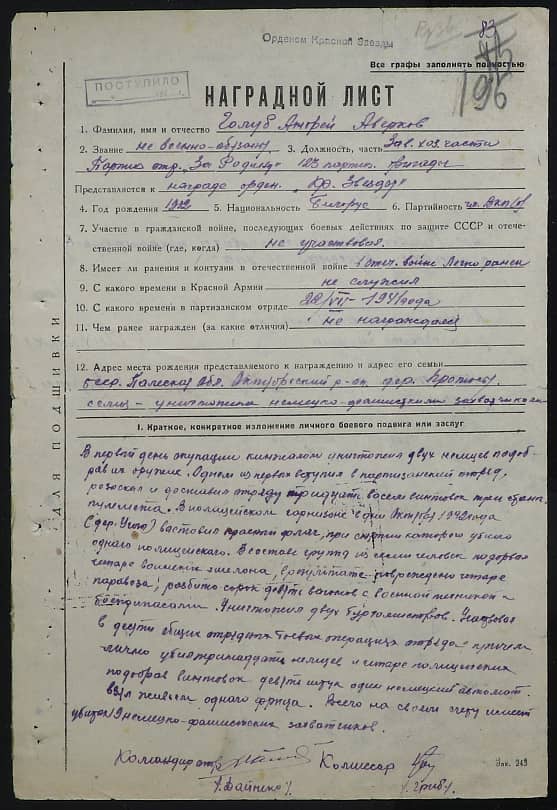 Орденом Красной Звезды
83
196
Все графы заполнять полностью
ПОСТУПИЛО
НАГРАДНОЙ ЛИСТ
1. Фамилия, имя и отчество Голуб Андрей Аверков
2. Звание не военно-обязан 3. Должность, часть Зав. хоз. части
Партиз отр. "За Родину" 123 партиз. бригады
Представляется к награде орден. "Кр. Звезда"
4. Год рождения 1912 5. Национальность Белорус 6. Партийность чл. ВКП(б)
7. Участие в гражданской войне, последующих боевых действиях по защите СССР и отече-
ственной войне (где, когда) не участвовал
8. Имеет ли ранения и контузии в отечественной войне в отеч. войне легко ранен
9. С какого времени в Красной Армии не служил
10. С какого времени в партизанском отряде 1941 года
11. Чем ранее награжден (за какие отличия) не награждался
12. Адрес места рождения представляемого к награждению и адрес его семьи
БССР Полесская обл. Октябрьский р-он дер.
семья - уничтожена немецко-фашистскими захватчиками
ДЛЯ ПОДШИВКИ
I. Краткое, конкретное изложение личного боевого подвига или заслуг
В первый день окупации кинжалом уничтожил двух немцев подоб-
рав их оружие. Одним из первых вступил в партизанский отряд,
разыскал и доставил отряду тридцать восемь винтовок три станк.
пулемета. В полицейском гарнизоне в дни Октября 1942 года
(дер. ) выставил красный флаг, при снятии которого убило
одного полицейского. В составе групп из семи человек подорвал
четыре воинских эшелона, в результате повреждено четыре
паравоза, разбито сорок девять вагонов с военной техникой и
боеприпасами. Уничтожил двух бургомистров. Участвовал
в десяти общих отрядных боевых операциях отряда причем
лично убил тринадцать немцев и четыре полицейских
подобрав винтовок девять штук один немецкий автомат.
Взял живьем одного фрица. Всего на своем счету имеет
убитых 19 немецко-фашистских захватчиков.
Командир отр. Комиссар
Зак. 243